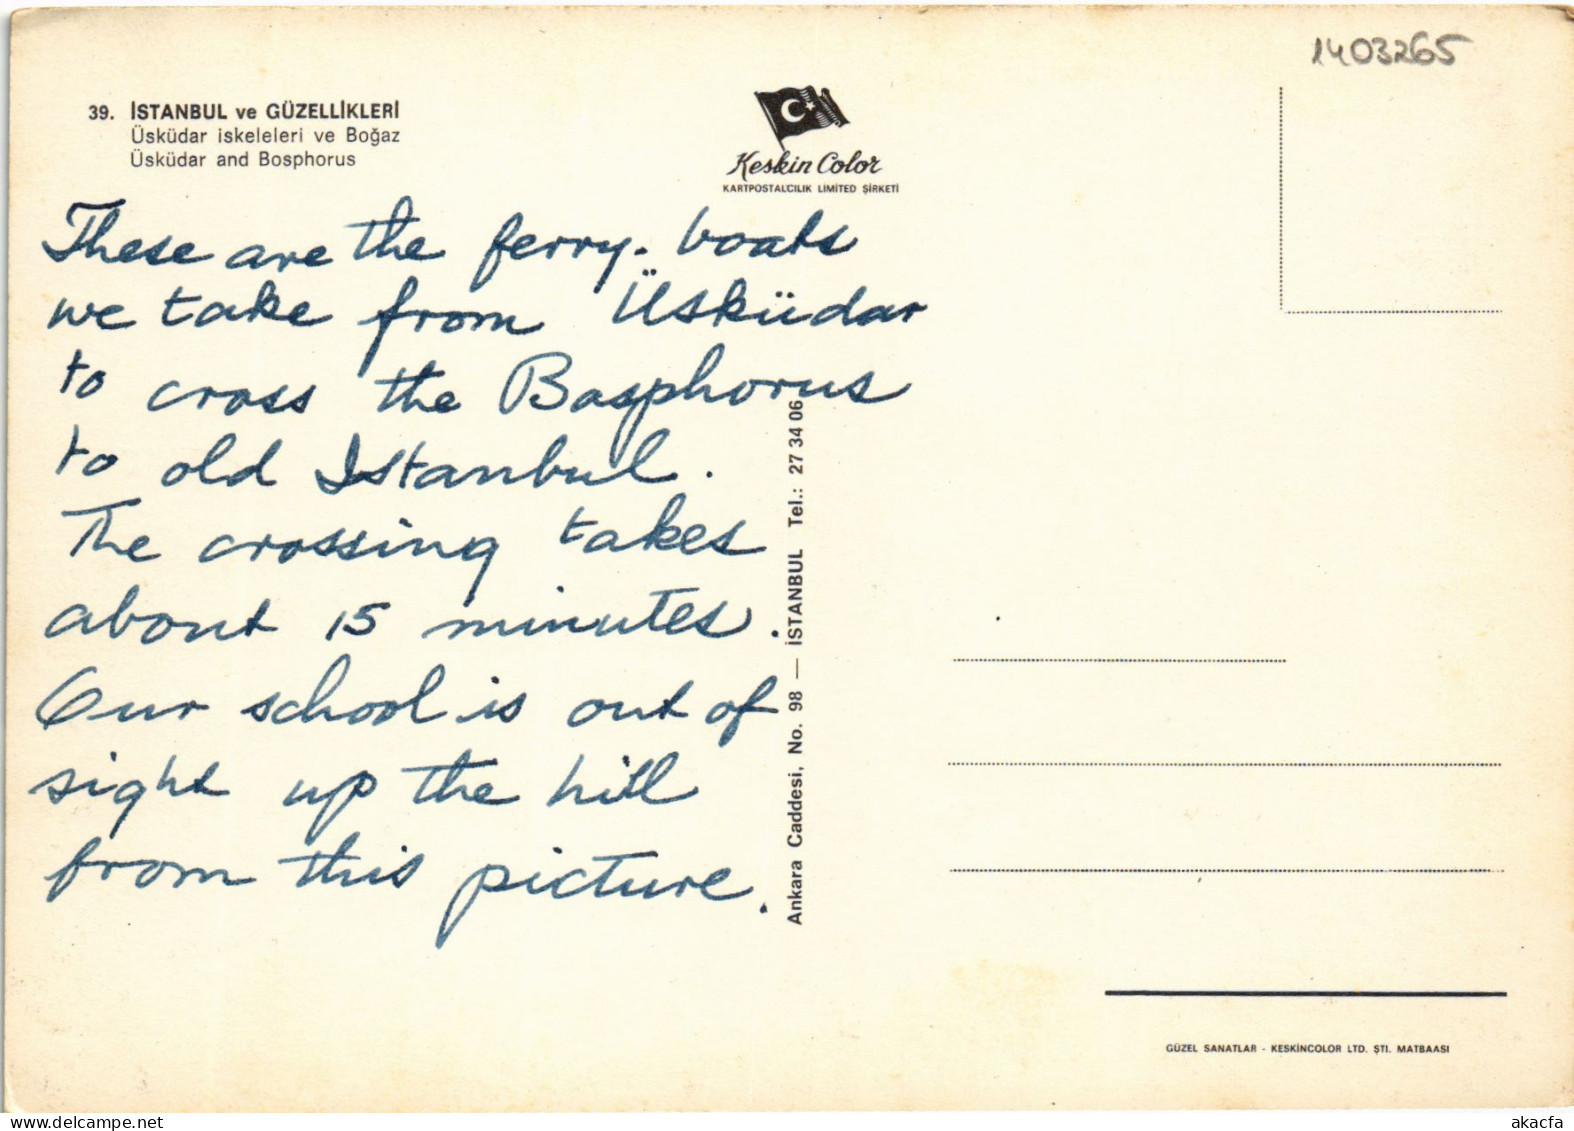 1403265
39. İSTANBUL ve GÜZELLİKLERİ
Üsküdar iskeleleri ve Boğaz
Üsküdar and Bosphorus
Keskin Color
KARTPOSTALCILIK LIMITED ŞİRKETİ
These are the ferry-boats
we take from Üsküdar
to cross the Bosphorus
to old Istanbul.
The crossing takes
about 15 minutes.
Our school is out of
sight up the hill
from this picture.
Ankara Caddesi, No. 98 — İSTANBUL Tel.: 27 34 06
GÜZEL SANATLAR - KESKİNCOLOR LTD. ŞTI. MATBAASI
akacfa